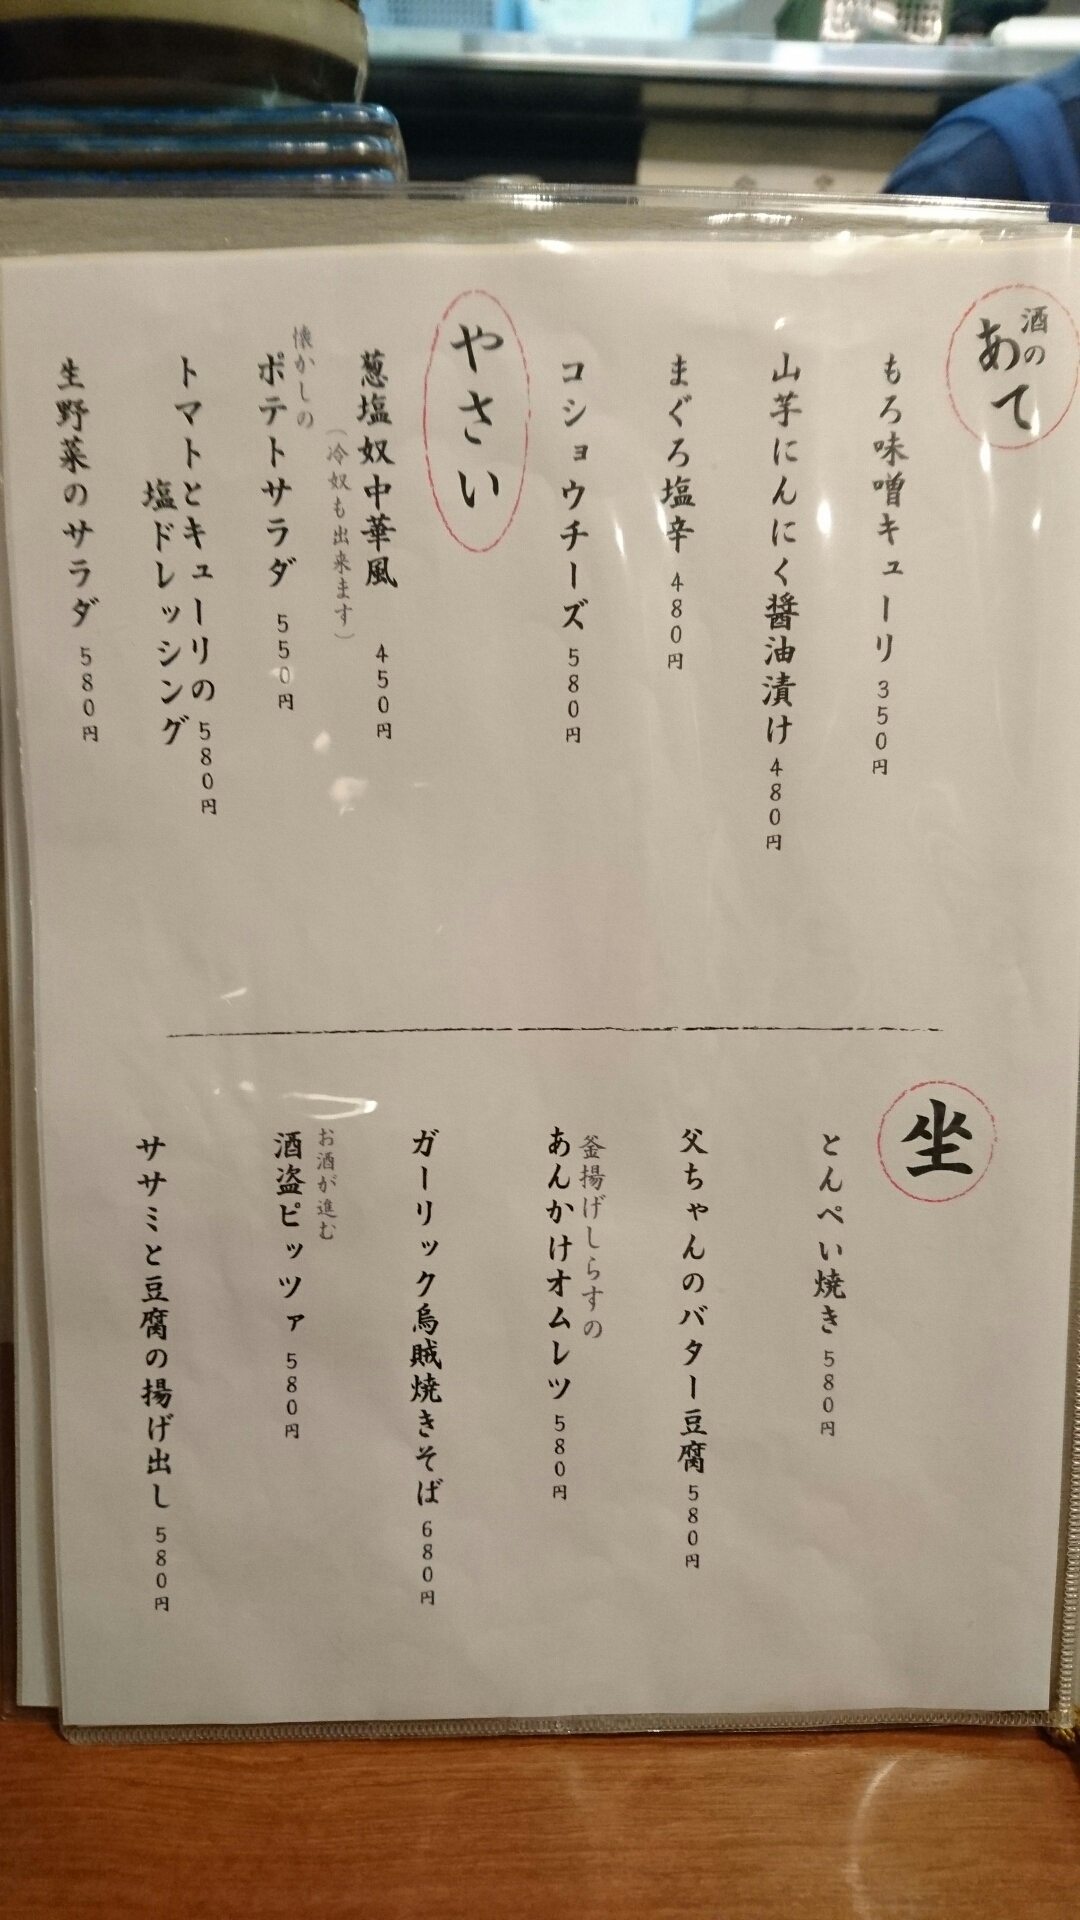 酒の
あて
もろ味噌キューリ 350円
山芋にんにく醤油漬け 480円
まぐろ塩辛 480円
コショウチーズ 580円
やさい
葱塩奴中華風 450円
（冷奴も出来ます）
懐かしの
ポテトサラダ 550円
トマトとキューリの 580円
塩ドレッシング
生野菜のサラダ 580円
坐
とんぺい焼き 580円
父ちゃんのバター豆腐 580円
釜揚げしらすの
あんかけオムレツ 580円
ガーリック烏賊焼きそば 680円
お酒が進む
酒盗ピッツァ 580円
ササミと豆腐の揚げ出し 580円